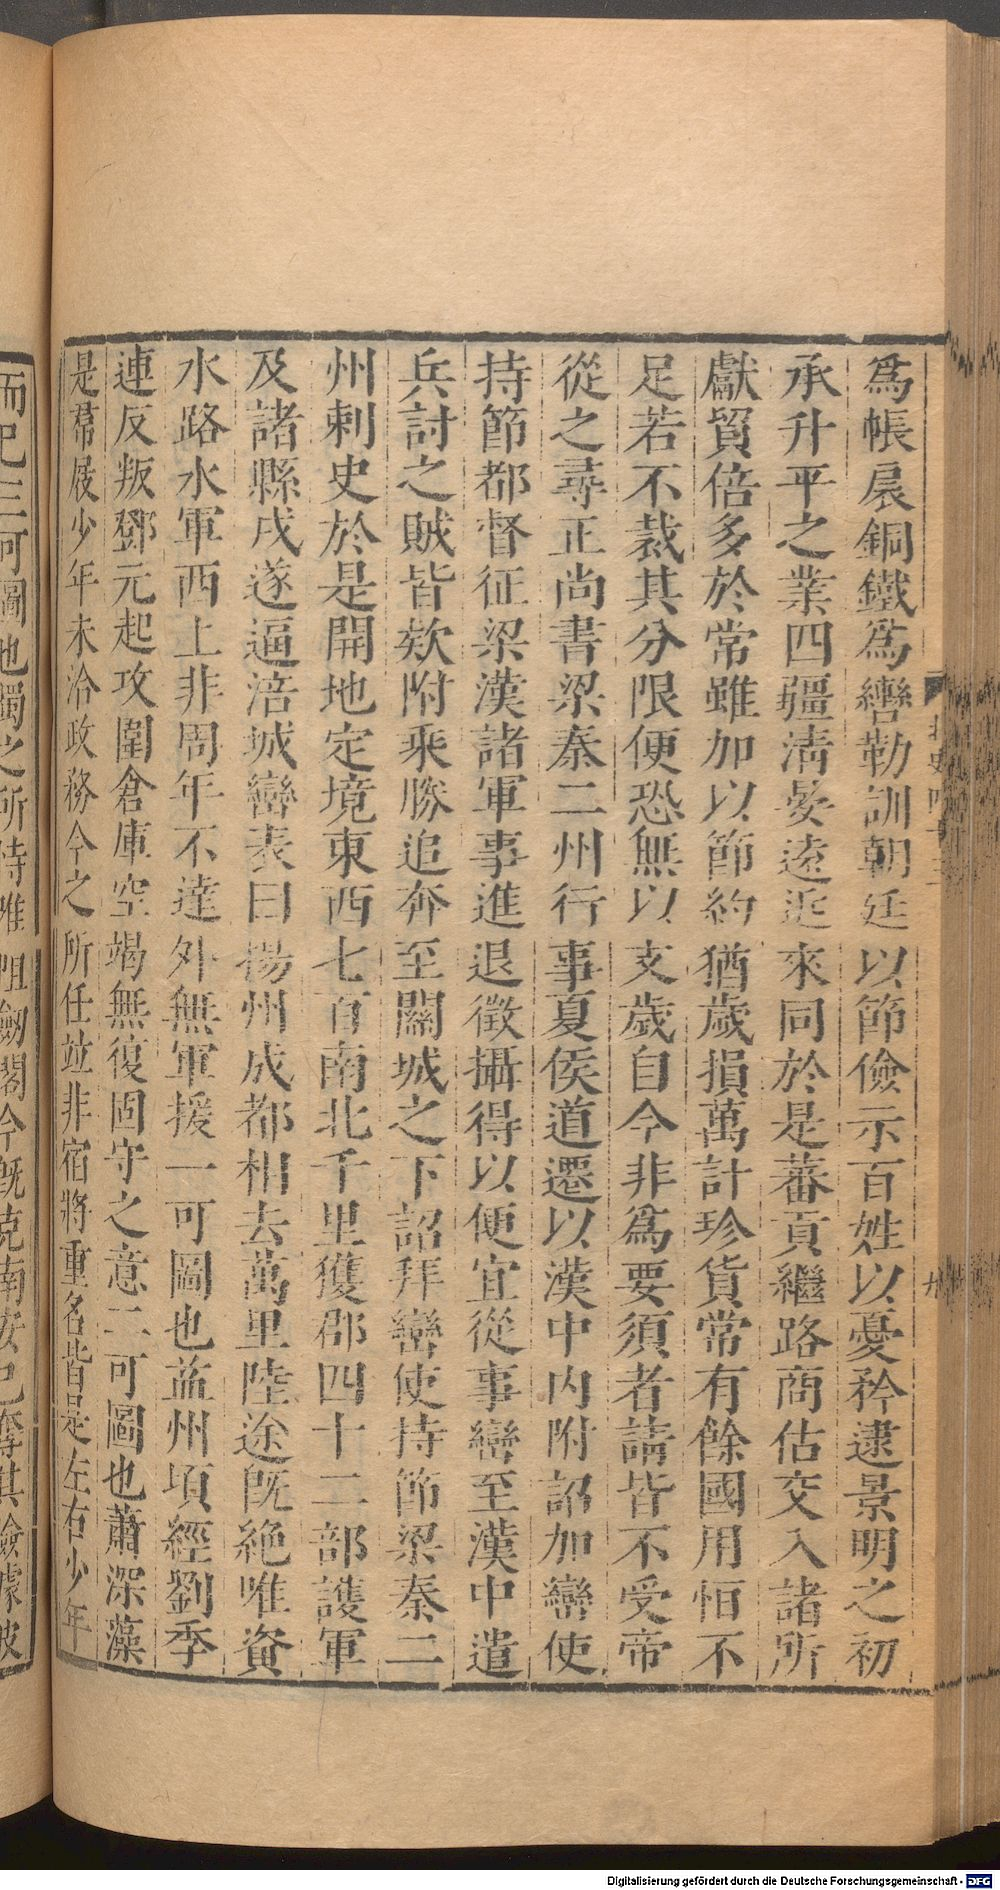 爲帳扆銅鐵爲轡勒訓朝廷以節儉示百姓以憂矜逮景明之初
承升平之業四疆清晏遠近來同於是蕃貢繼路商估交入諸所
獻貿倍多於常雖加以節約猶歲損萬計珍貨常有餘國用恒不
足若不裁其分限便恐無以支歲自今非爲要須者請皆不受帝
從之尋正尚書梁秦二州行事夏侯道遷以漢中內附詔加巒使
持節都督征梁漢諸軍事進退徵攝得以便宜從事巒至漢中遣
兵討之賊皆欵附乘勝追奔至關城之下詔拜巒使持節梁秦二
州刺史於是開地定境東西七百南北千里獲郡四十二部護軍
及諸縣戍遂逼涪城巒表曰揚州成都相去萬里陸途旣絶唯資
水路水軍西上非周年不達外無軍援一可圖也益州頃經劉季
連反叛鄧元起攻圍倉庫空竭無復固守之意二可圖也蕭深藻
是帬屐少年未洽政務今之所任竝非宿將重名皆是左右少年
而已三可圖也蜀之所恃唯阻劒閣今旣克南安已奪其險據彼
北史
九
Digitalisierung gefördert durch die Deutsche Forschungsgemeinschaft - DFG